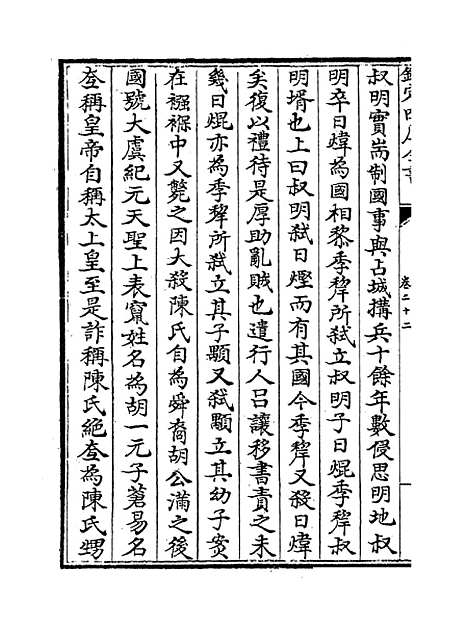 欽定四庫全書
卷二十二
叔明實耑制國事與占城搆兵十餘年數侵思明地叔
明卒日煒為國相黎季犛所弑立叔明子日焜季犛叔
明壻也上曰叔明弑日熞而有其國今季犛又殺日煒
矣復以禮待是厚助亂賊也遣行人吕讓移書責之未
幾日焜亦為季犛所弑立其子顒又弑顒立其幼子𡩋
在襁褓中又斃之因大殺陳氏自為舜裔胡公滿之後
國號大虞紀元天聖上表竄姓名為胡一元子蒼易名
㚞稱皇帝自稱太上皇至是詐稱陳氏絶㚞為陳氏甥